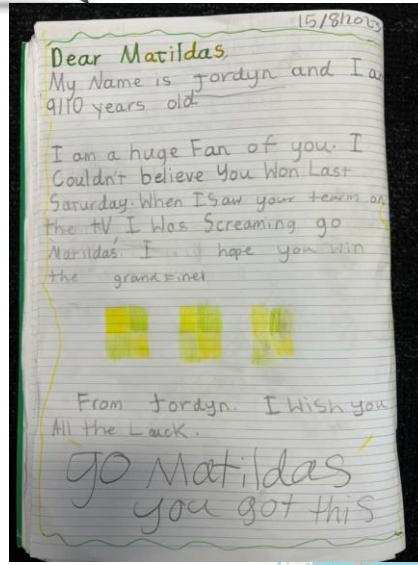 15/8/2023
Dear Matildas,
My Name is Jordyn and I am
9/10 years old
I am a huge Fan of you. I
Couldn't believe You Won Last
Saturday. When I Saw your team on
the tV I Was Screaming go
Matildas. I hope you win
the grand Finel
From Jordyn. I Wish you
All the Luck.
go Matildas
you got this